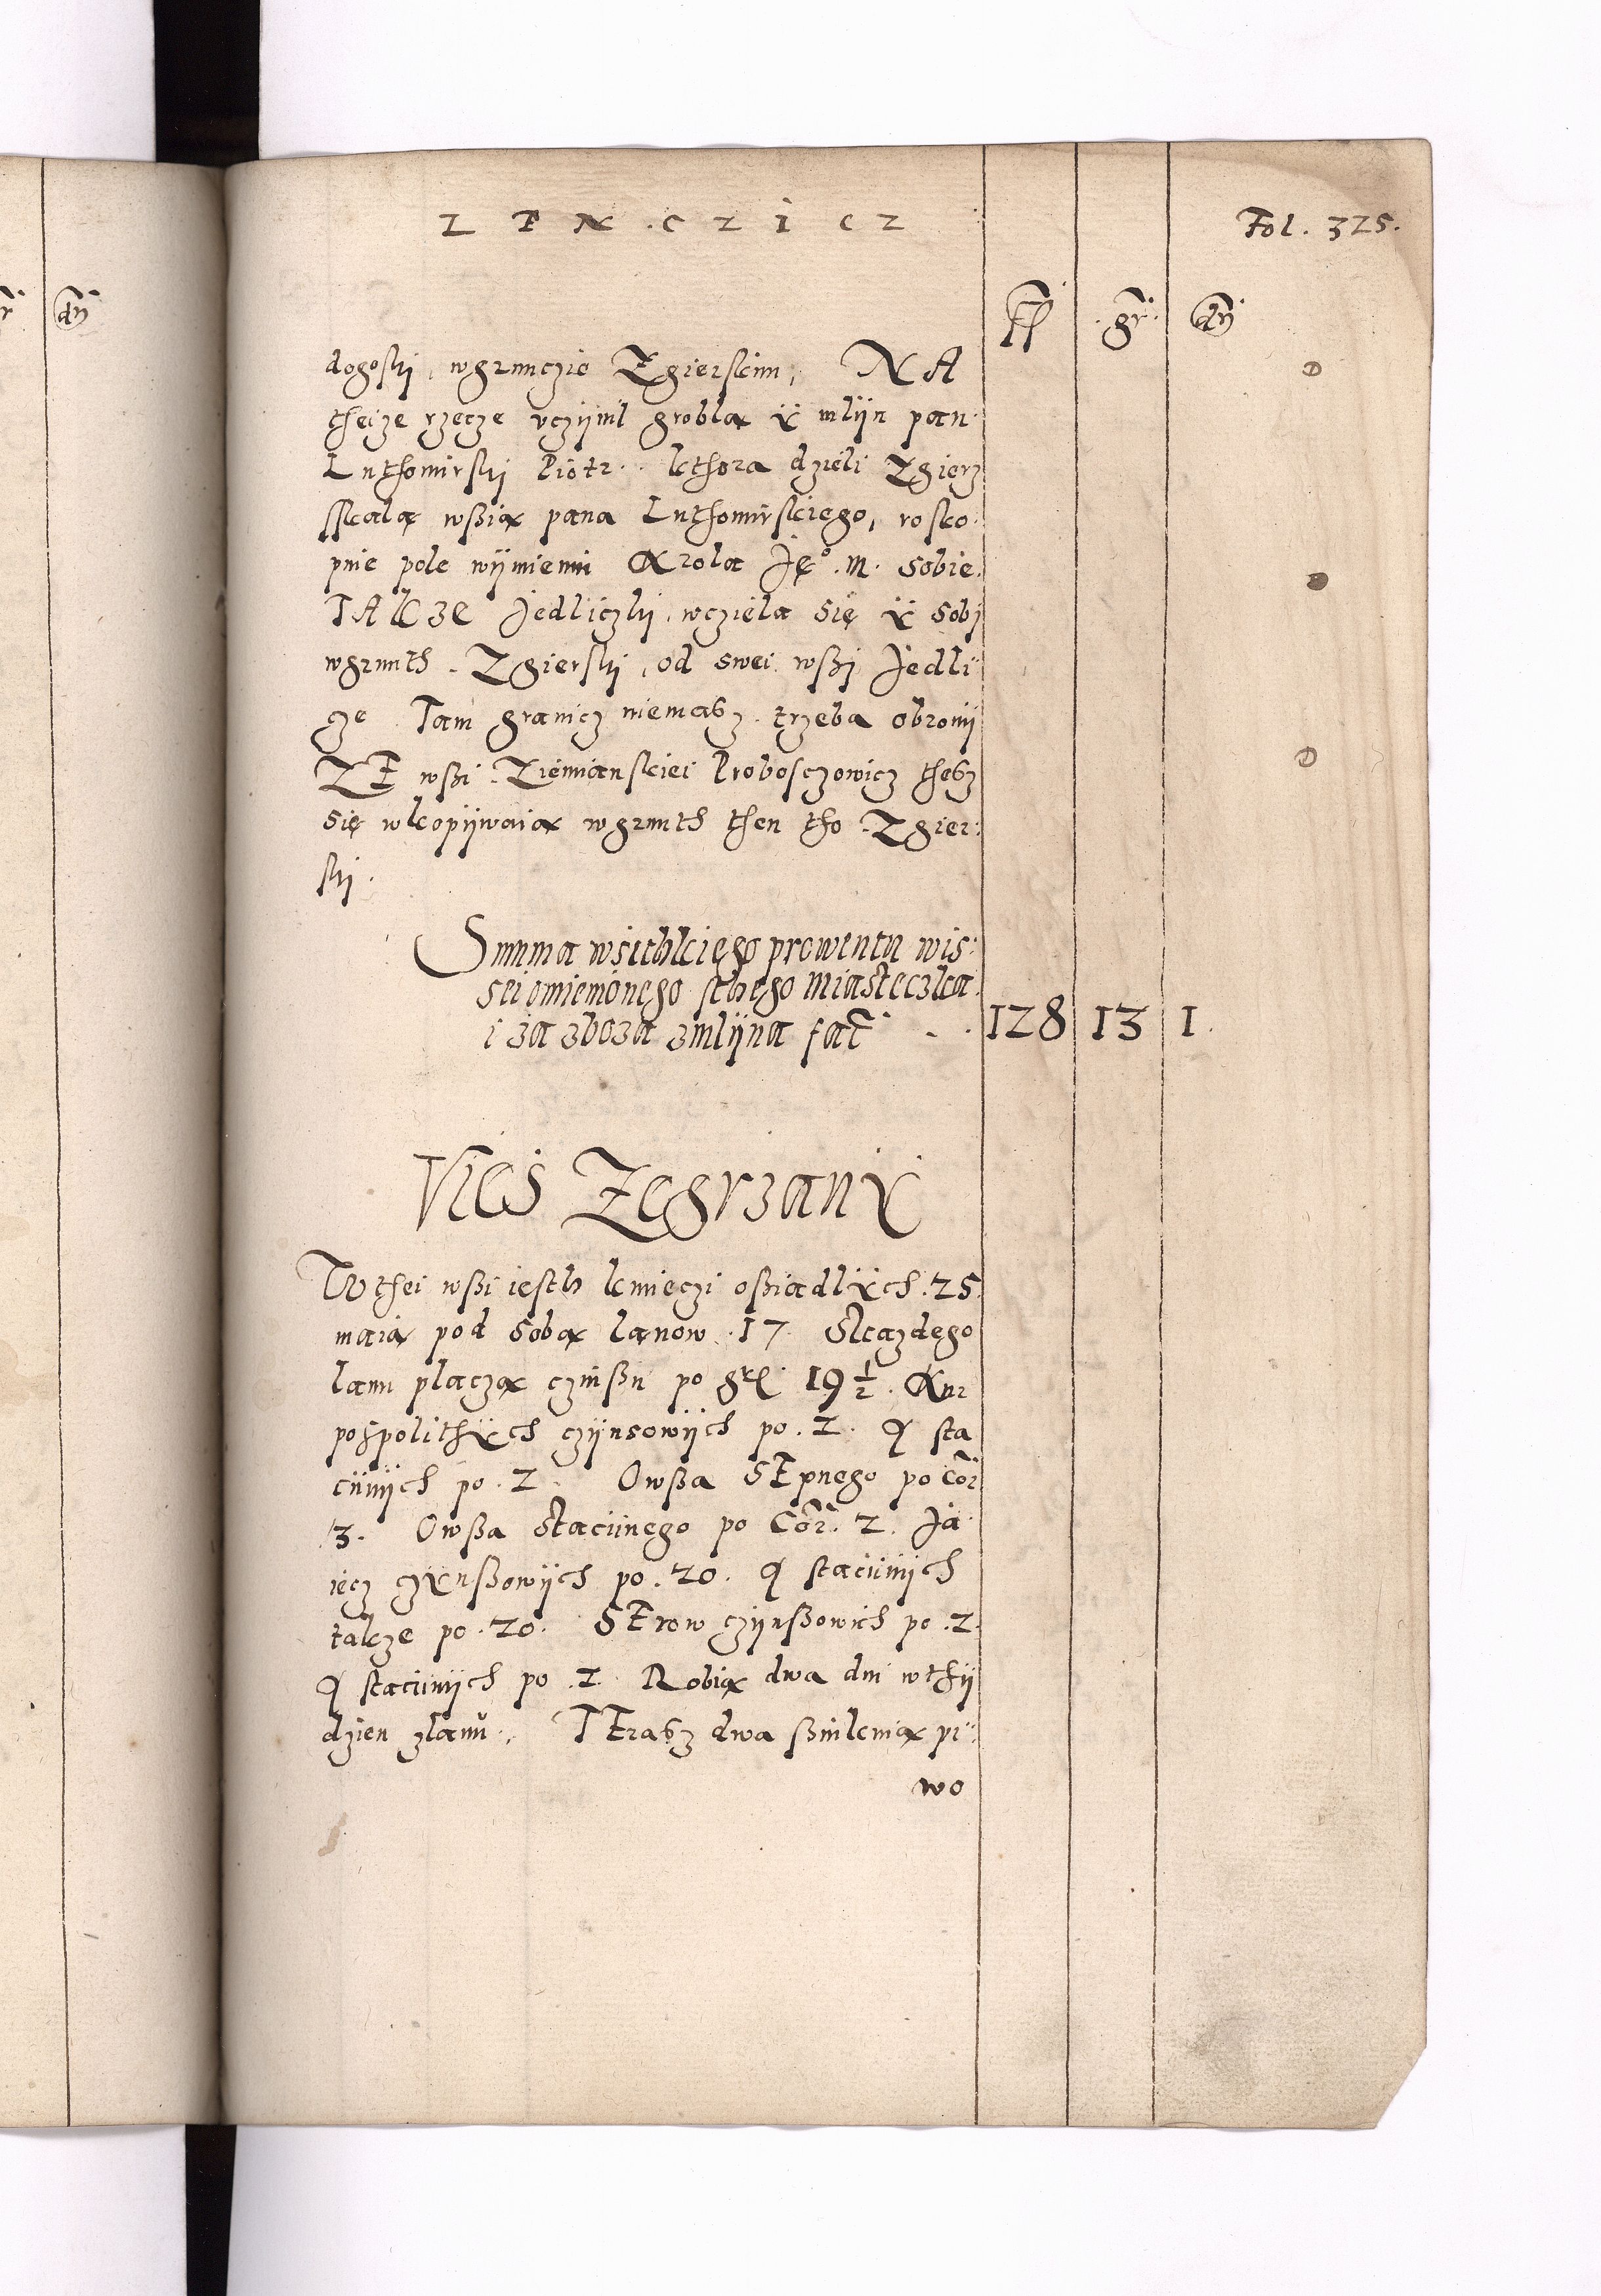 LENCZICZ
Fol. 325.
fl gr. dn
dogoski, wgrunczie Zgierskim, NA
theize rzecze vczijnil groblą ÿ mlijn pan
Luthomirski Piotr. kthora dzieli Zgierz
skalą wßią pana Luthomirskiego, rosko
pnie pole wijmiemi Krola Jeº. M. sobie.
TAKZE Jedliczki, wcziela się ÿ sobj
wgrunth Zgierski, od swei wßj Jedli
cze Tam granicz niemasz trzeba obronij
ZE wßi Ziemianskiei Proboszczowicz thesz
się wkopijwaią wgrunth then tho Zgier:
ski.
Summa wsithkiego prowentu wis:
sei omienionego sthego Miasteczka
i za zboza zmlijna fat . . 128 13 1.
Vies Zegrzanÿ
W thei wßi iesth kmieczi oßiadlÿch .25.
maią pod sobą lanow .17. Skazdego
lanu placzą czinßu po grl 19 1/2. Kur
pospolithÿch czijnsowijch po .2. Q sta
ciinijch po .2. Owßa SEpnego po Cor
3. Owßa Staciinego po Cor. 2. Ja
iecz czÿnßowijch po .20. Q staciinijch
takze po .20. SErow czijnßowich po .2.
Q staciinijch po .2. Robią dwa dni w thij
dzien zlanu. TErasz dwa ßinknią pi:
wo